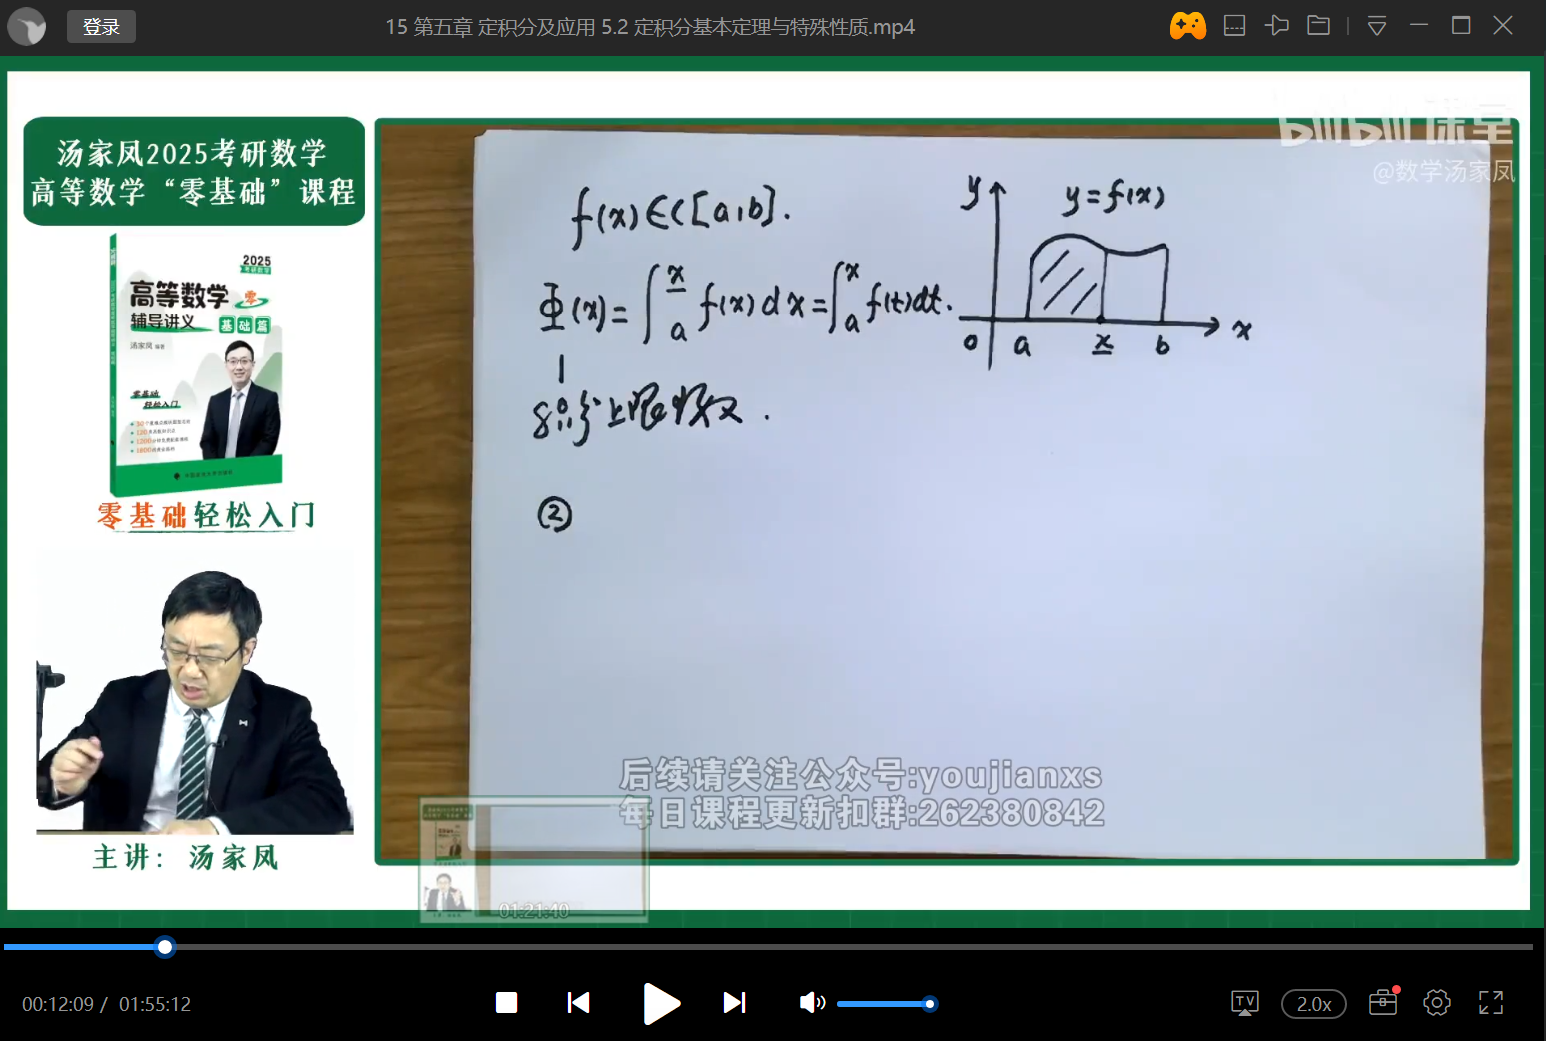 登录
15 第五章 定积分及应用 5.2 定积分基本定理与特殊性质.mp4
汤家凤2025考研数学
高等数学“零基础”课程
2025
考研数学
高等数学 零
辅导讲义 基础篇
汤家凤 编著
零基础
轻松入门
零基础轻松入门
主讲：汤家凤
bilibili 课堂
@数学汤家凤
f(x)∈C[a,b].
Φ(x)=∫ₐˣ f(x)dx=∫ₐˣ f(t)dt.
积分上限函数.
②
y
y=f(x)
0 a x b x
后续请关注公众号:youjianxs
每日课程更新扣群:262380842
01:21:40
00:12:09 / 01:55:12
TV
2.0x